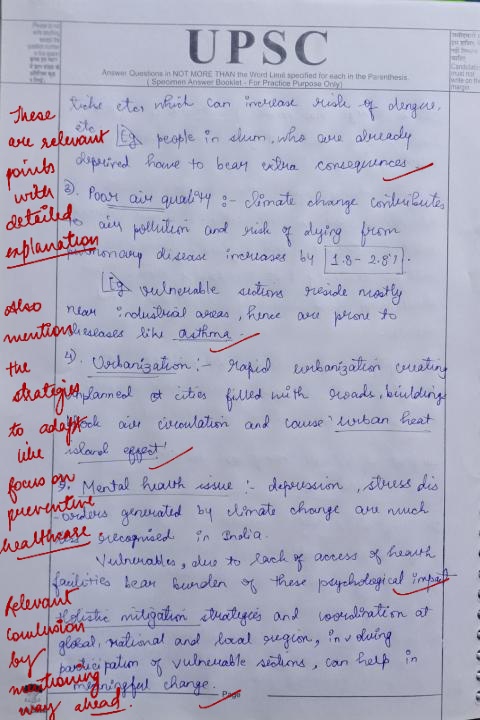 UPSC
Answer Questions in NOT MORE THAN the Word Limit specified for each in the Parenthesis.
( Specimen Answer Booklet - For Practice Purpose Only)
Candidate
must not
write on the
margin
which can increase risk of dengue,
etc. Eg people in slum, who are already
deprived have to bear extra consequences.
3) Poor air quality :- climate change contributes
to air pollution and risk of dying from
pulmonary disease increases by 1.8 - 2.8%.
Eg vulnerable sections reside mostly
near industrial areas, hence are prone to
diseases like asthma.
4) Urbanization :- rapid urbanization creating
unplanned cities filled with roads, buildings
block air circulation and cause 'urban heat
island effect'.
5. Mental health issue :- depression, stress dis
-orders generated by climate change are much
less recognised in India.
Vulnerables, due to lack of access of health
facilities bear burden of these psychological impact
Holistic mitigation strategies and coordination at
global, national and local region, involving
participation of vulnerable sections, can help in
meaningful change.
Page
These
are relevant
points
with
detailed
explanation
Also
mention
the
strategies
to adapt
like
focus on
preventive
healthcare
Relevant
conclusion
by
mentioning
way ahead.